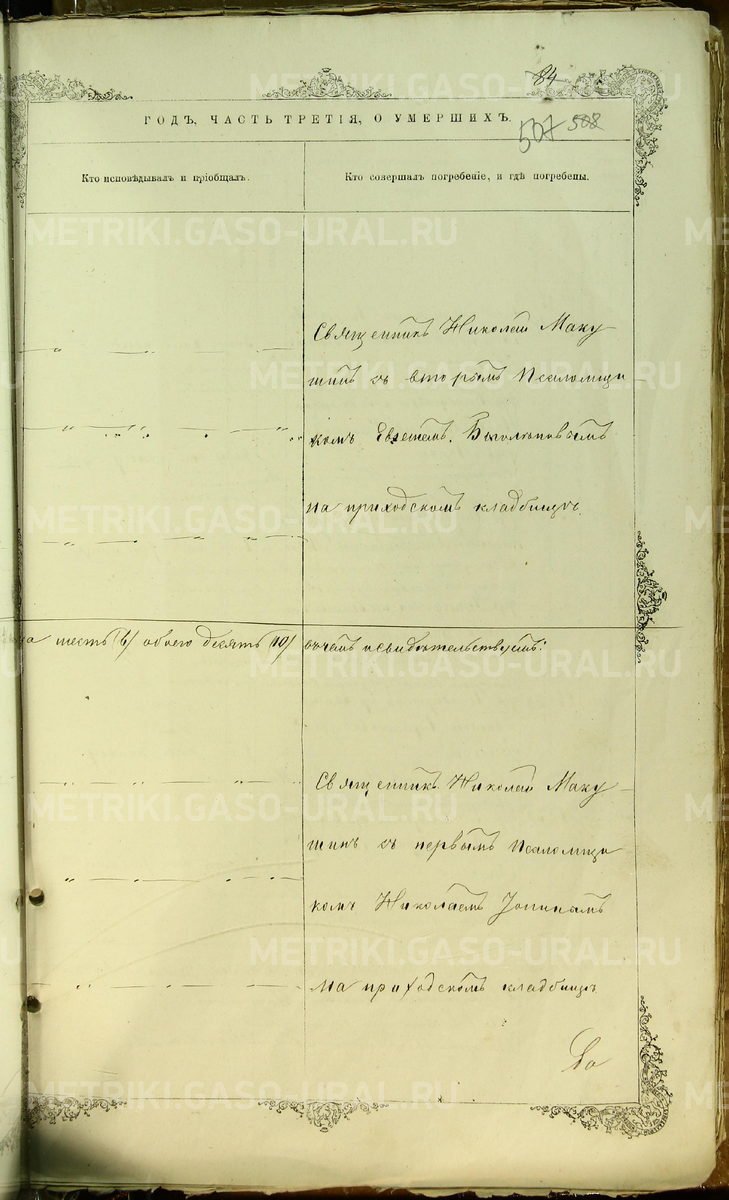 84
ГОДЪ, ЧАСТЬ ТРЕТІЯ, О УМЕРШИХЪ.
507 508
Кто исповѣдывалъ и пріобщалъ.
Кто совершалъ погребеніе, и гдѣ погребены.
Священникъ Николай Маку
шинъ съ вторымъ Псаломщи
комъ Евгеніемъ
на приходскомъ кладбищѣ.
шесть (6) обоего десять (10) въ чемъ и свидѣтельствуемъ:
Священникъ Николай Маку
шинъ съ первымъ Псаломщи
комъ Николаемъ
на приходскомъ кладбищѣ
METRIKI.GASO-URAL.RU